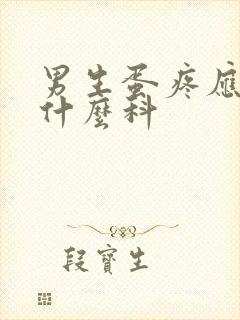 男生蛋疼應
什麼科
段寶生